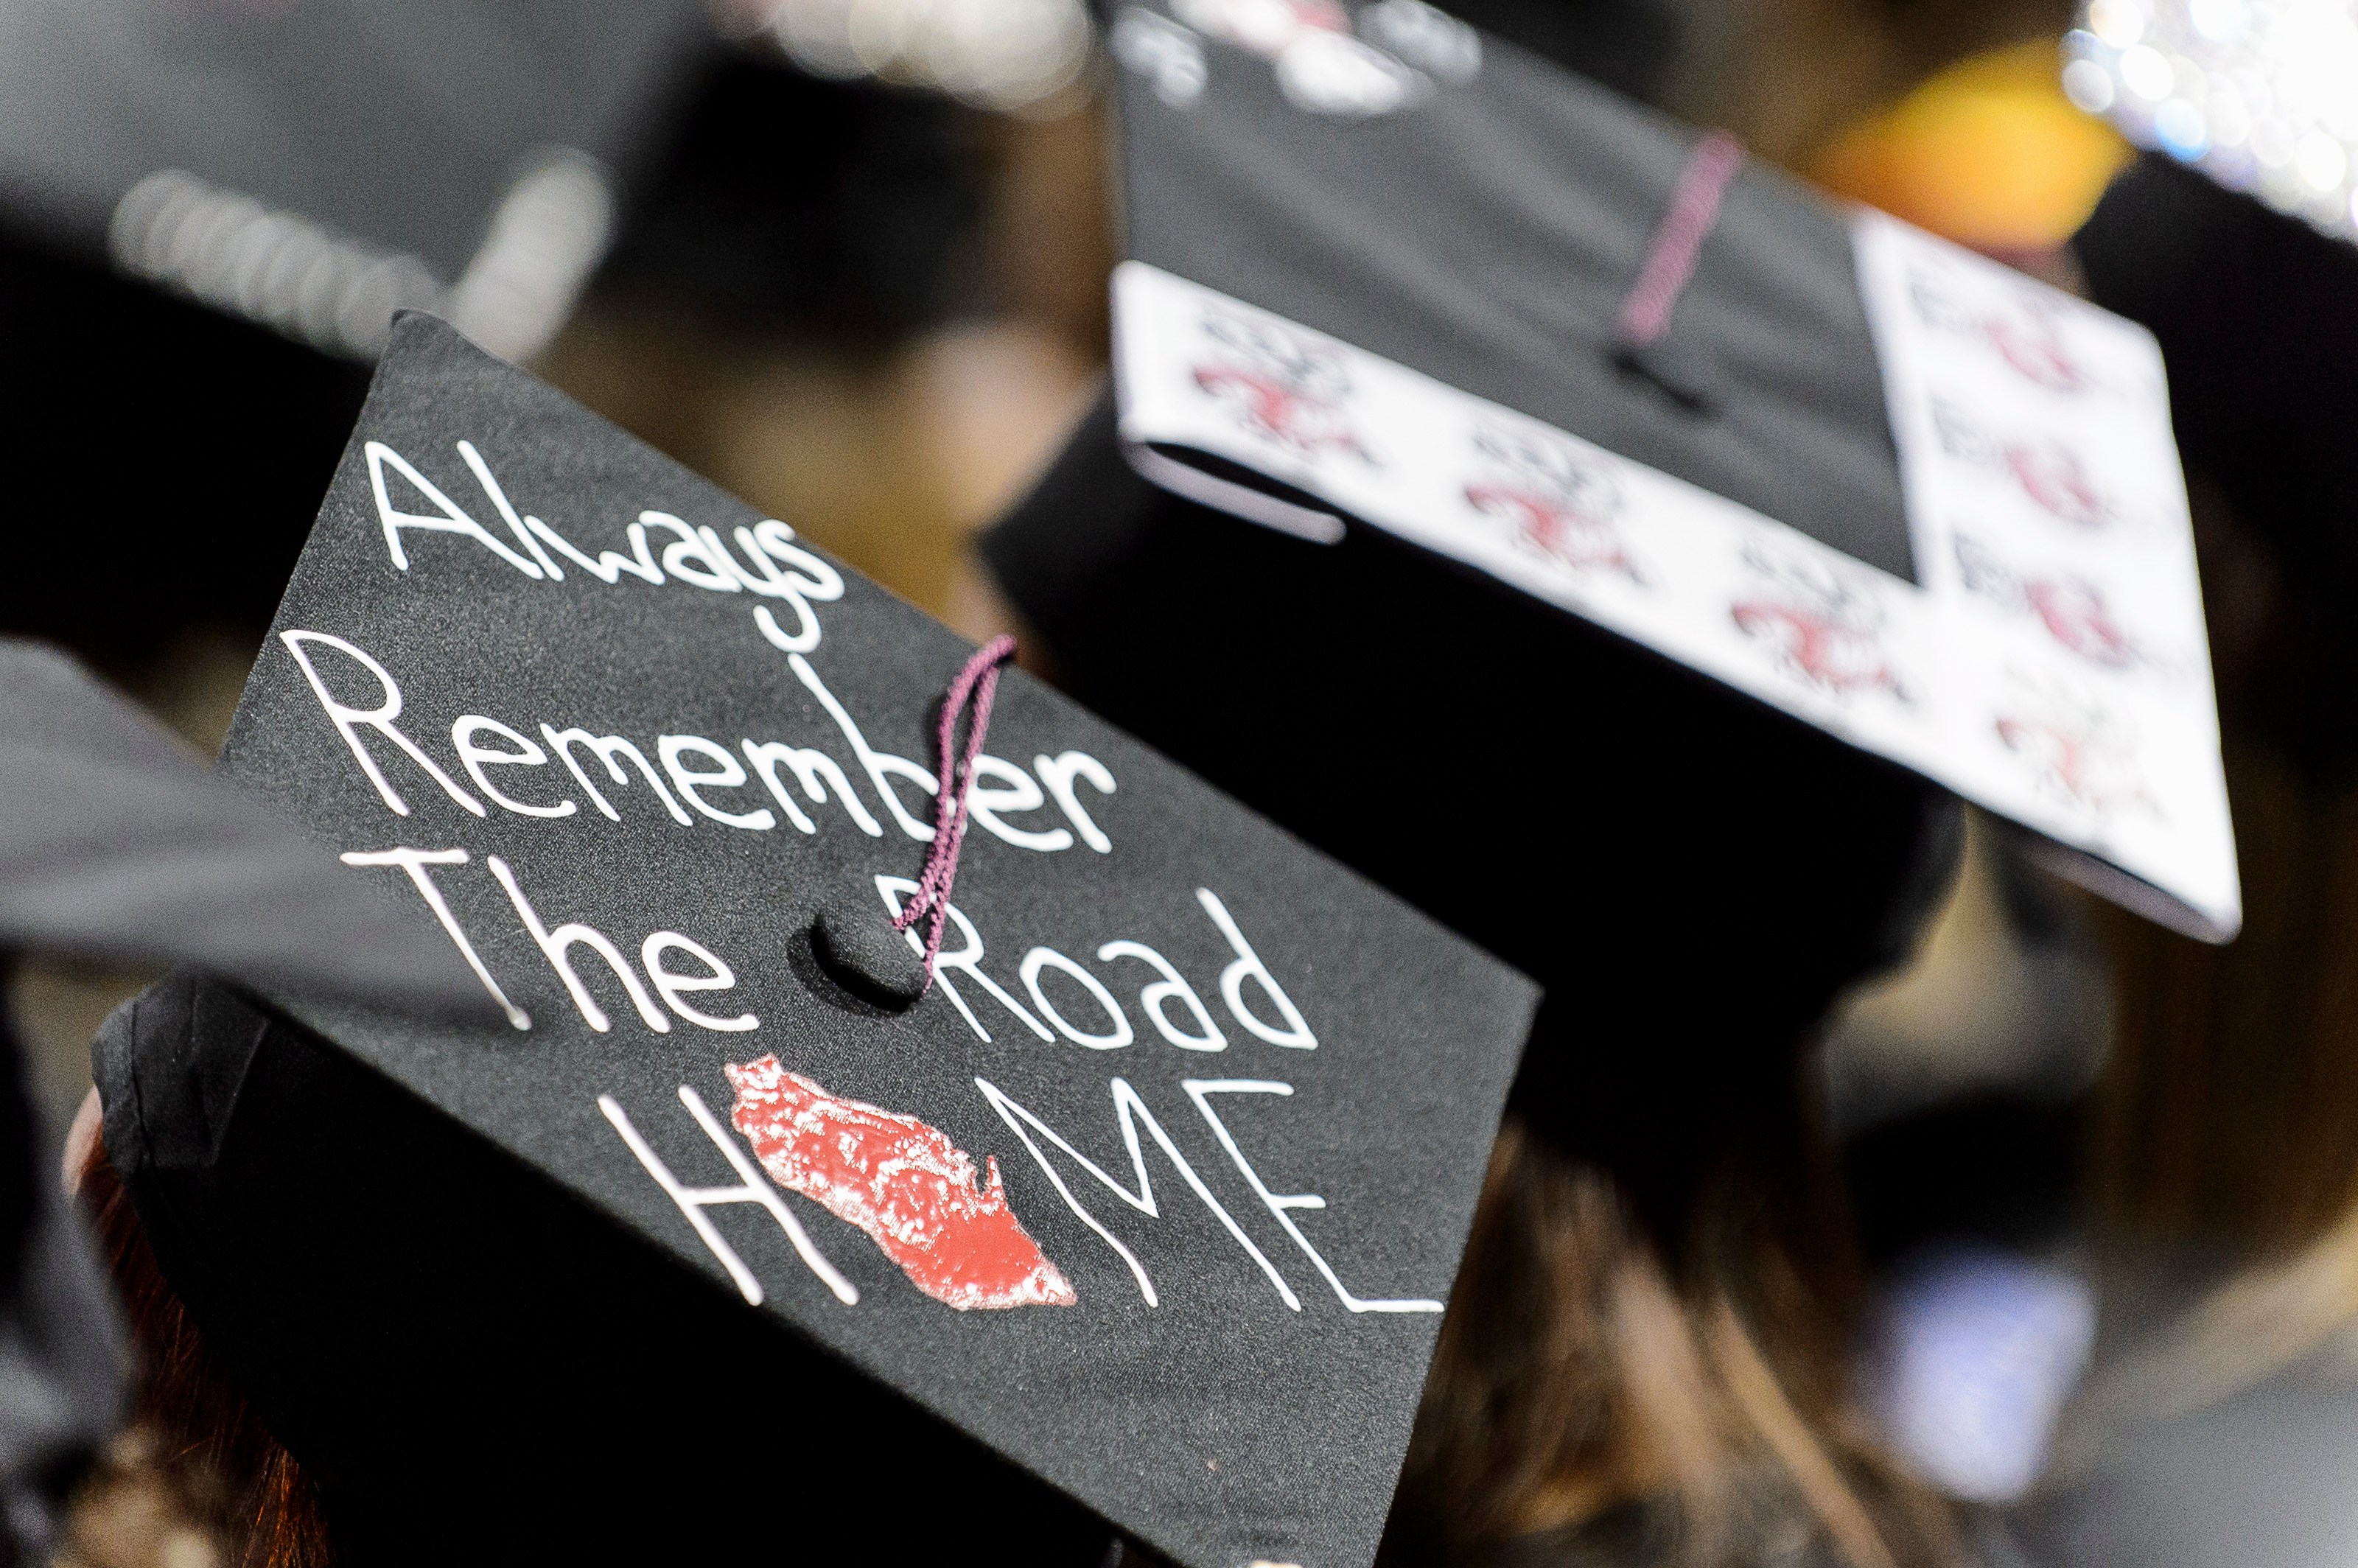 Always
Remember
The Road
H ME